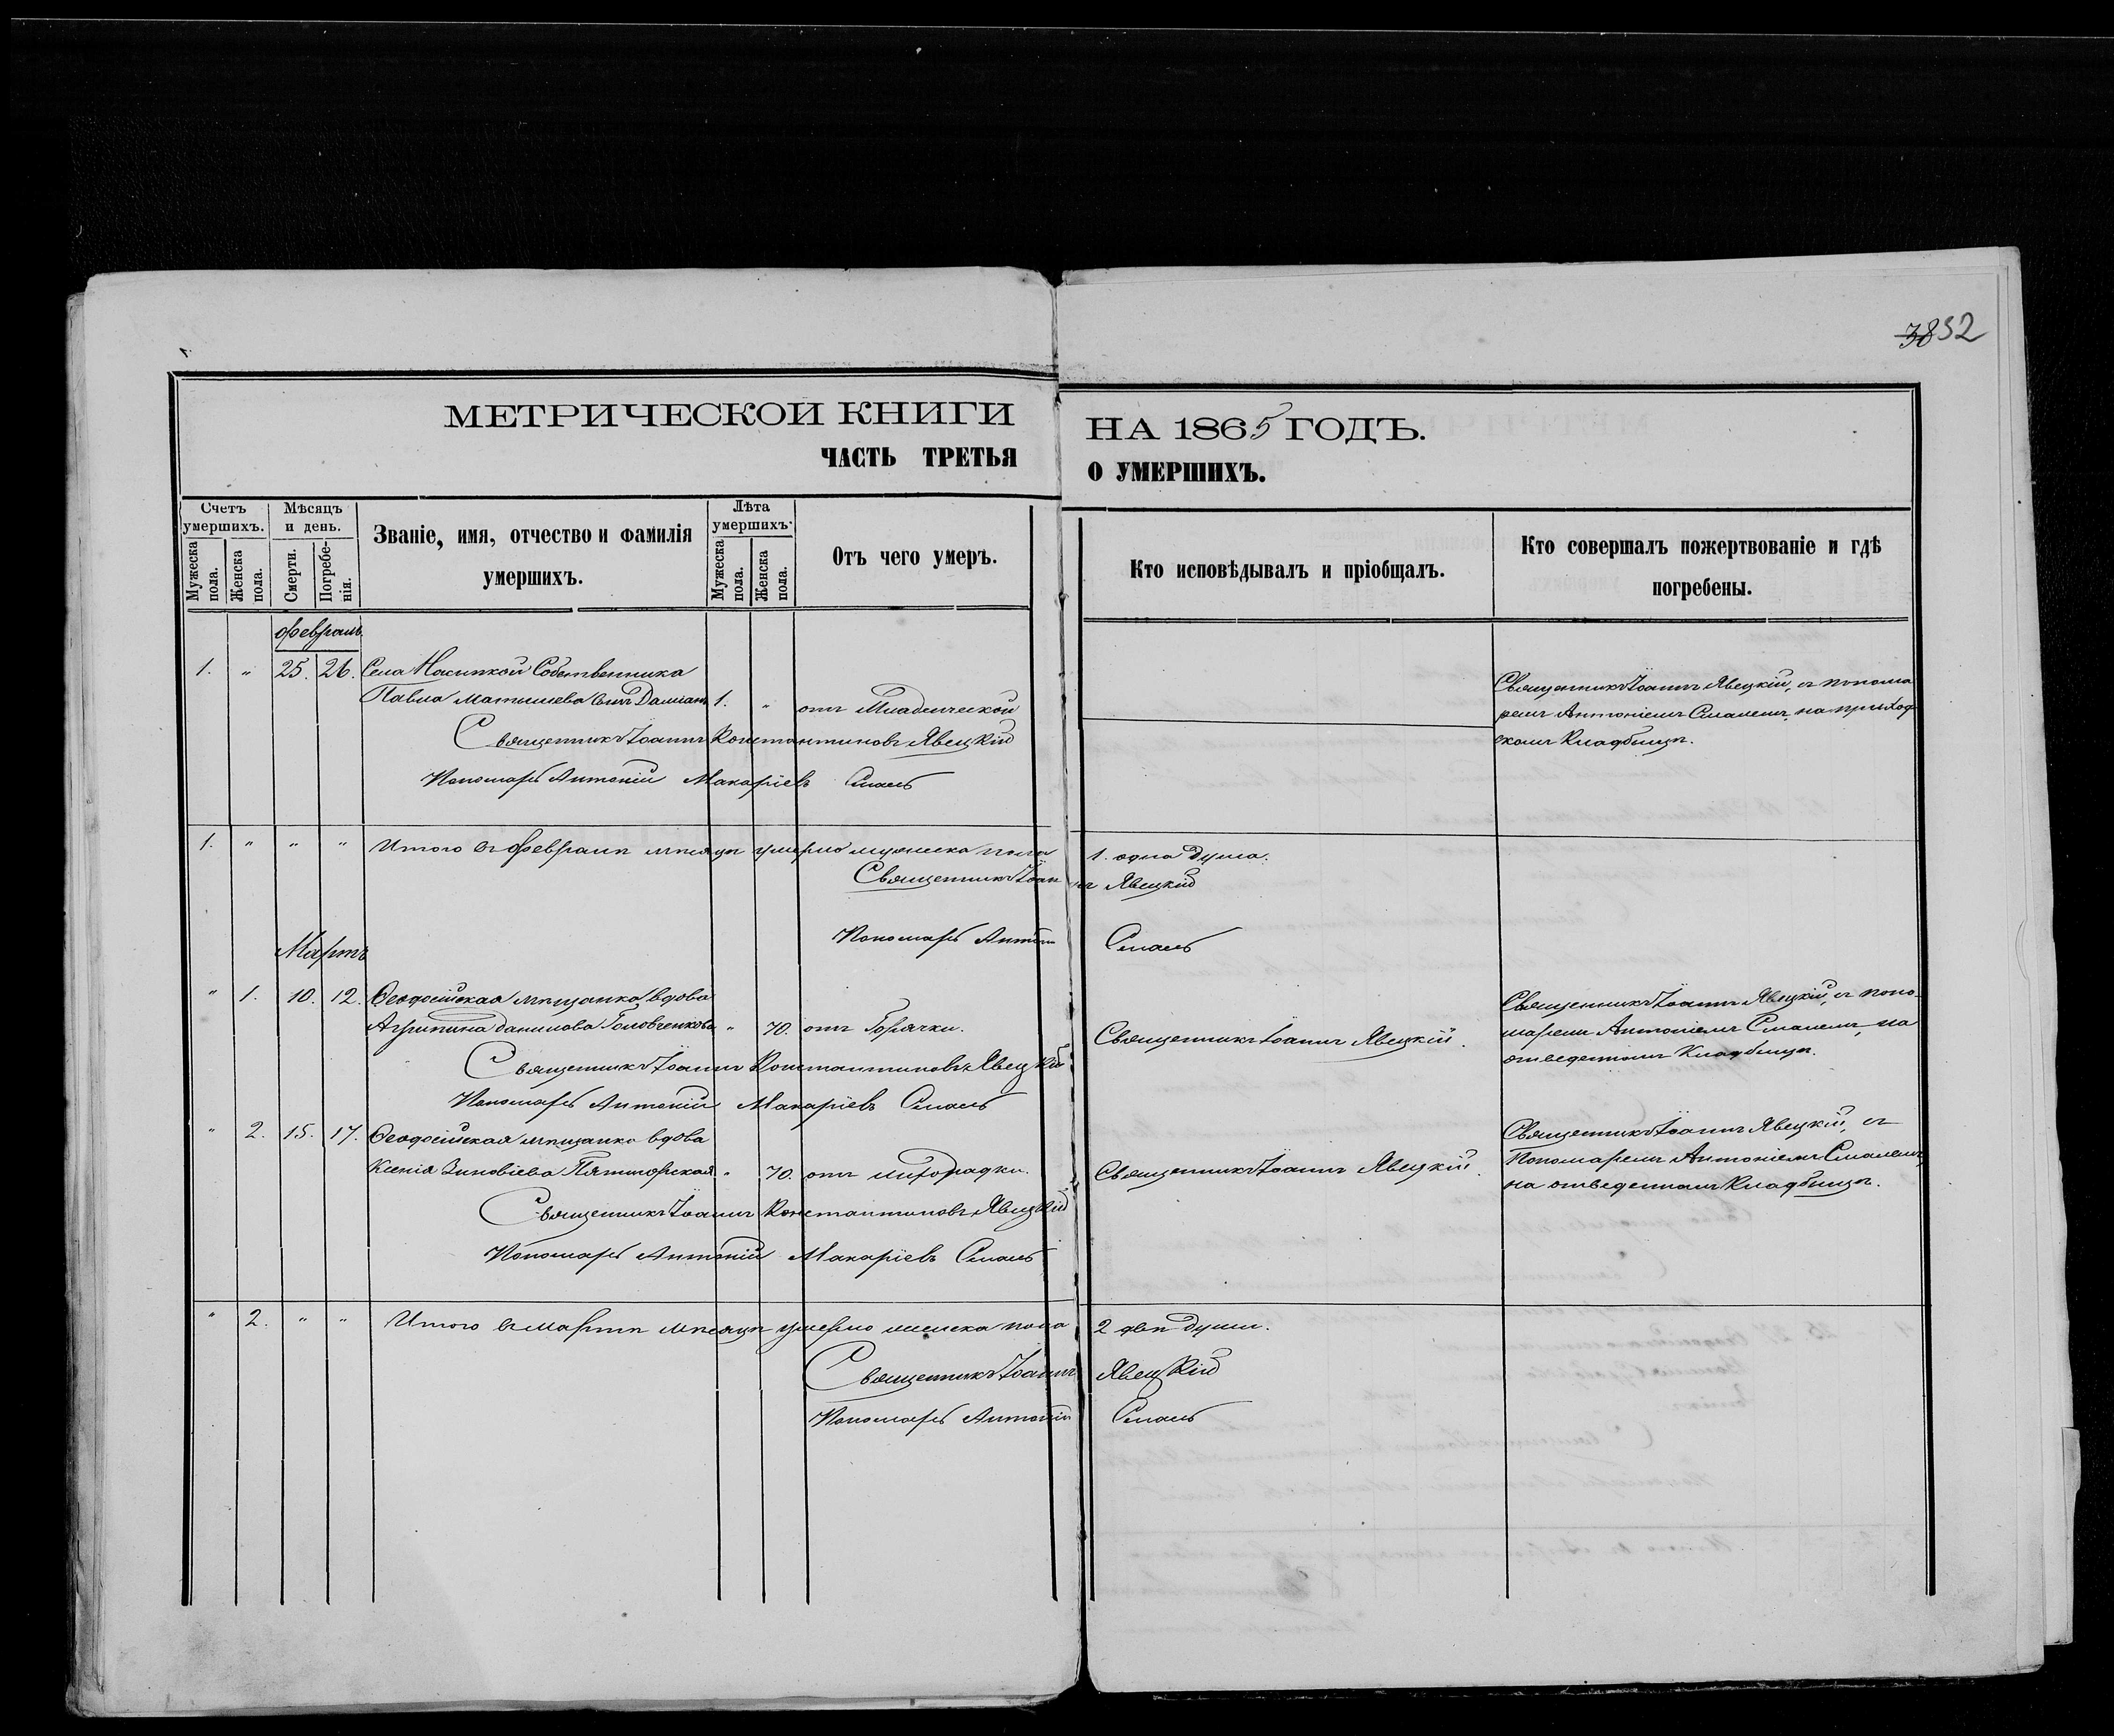 38 32
МЕТРИЧЕСКОЙ КНИГИ НА 1865 ГОДЪ.
ЧАСТЬ ТРЕТЬЯ О УМЕРШИХЪ.
Счетъ умершихъ.
Мужеска пола.
Женска пола.
Мѣсяцъ и день.
Смерти.
Погребенія.
Званіе, имя, отчество и фамилія
умершихъ.
Лѣта умершихъ.
Мужеска пола.
Женска пола.
Отъ чего умеръ.
Кто исповѣдывалъ и пріобщалъ.
Кто совершалъ пожертвованіе и гдѣ
погребены.
февраль
1. " 25. 26. Села Насипкой Собственника
Павла Матышева сынъ Даміанъ 1. " отъ Младенческой
Священникъ Іоаннъ Константиновъ Явецкій
Пономарь Антоній Макаріевъ Смаль
Священникъ Іоаннъ Явецкій, съ понома
ремъ Антоніемъ Смалемъ, на приход
скомъ Кладбищѣ.
1. " " " Итого въ февралѣ мѣсяцѣ умерло мужеска пола 1. одна душа.
Священникъ Іоаннъ Явецкій
Пономарь Антоній Смаль
Мартъ
" 1. 10. 12. Феодосійская мѣщанка вдова
Агрипина Данилова Головченкова " 70. отъ Горячки.
Священникъ Іоаннъ Константиновъ Явецкій
Пономарь Антоній Макаріевъ Смаль
Священникъ Іоаннъ Явецкій.
Священникъ Іоаннъ Явецкій, съ поно-
маремъ Антоніемъ Смалемъ, на
отведенномъ Кладбищѣ.
" 2. 15. 17. Феодосійская мѣщанка вдова
Ксенія Зиновіева Пятигорская " 70. отъ лихорадки.
Священникъ Іоаннъ Константиновъ Явецкій
Пономарь Антоній Макаріевъ Смаль
Священникъ Іоаннъ Явецкій.
Священникъ Іоаннъ Явецкій, съ
Пономаремъ Антоніемъ Смалемъ,
на отведенномъ Кладбищѣ.
" 2. " " Итого въ мартѣ мѣсяцѣ умерло женска пола 2 двѣ души.
Священникъ Іоаннъ Явецкій
Пономарь Антоній Смаль